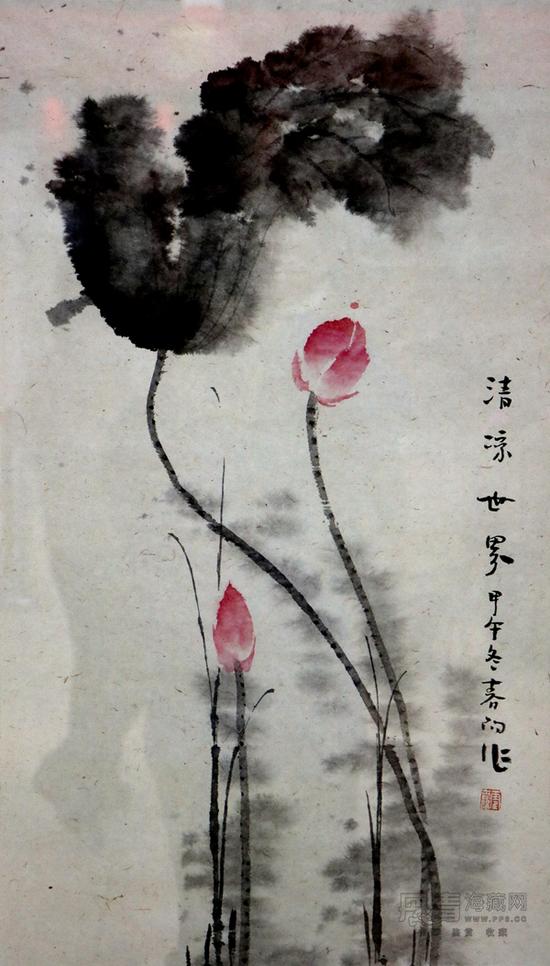 清凉世界甲午冬春向作
海藏网
WWW.PPS.CC
鉴赏 收藏